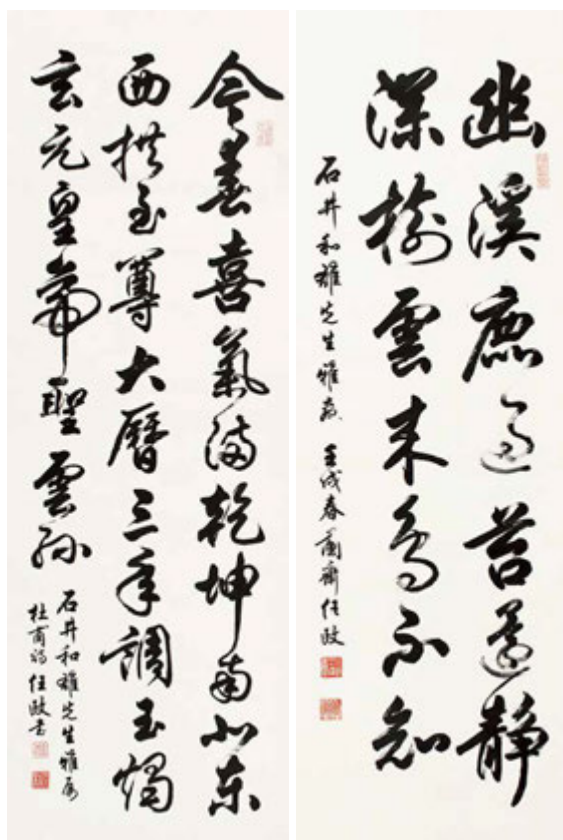 幽溪鹿過苔還靜
深樹雲来鳥不知
石井和雄先生雅 壬戌春蘭齋任政
今春喜氣滿乾坤南北东
西拱至尊大曆三年調玉燭
玄元皇帝聖雲孫
石井和雄先生雅属
杜甫詩任政书